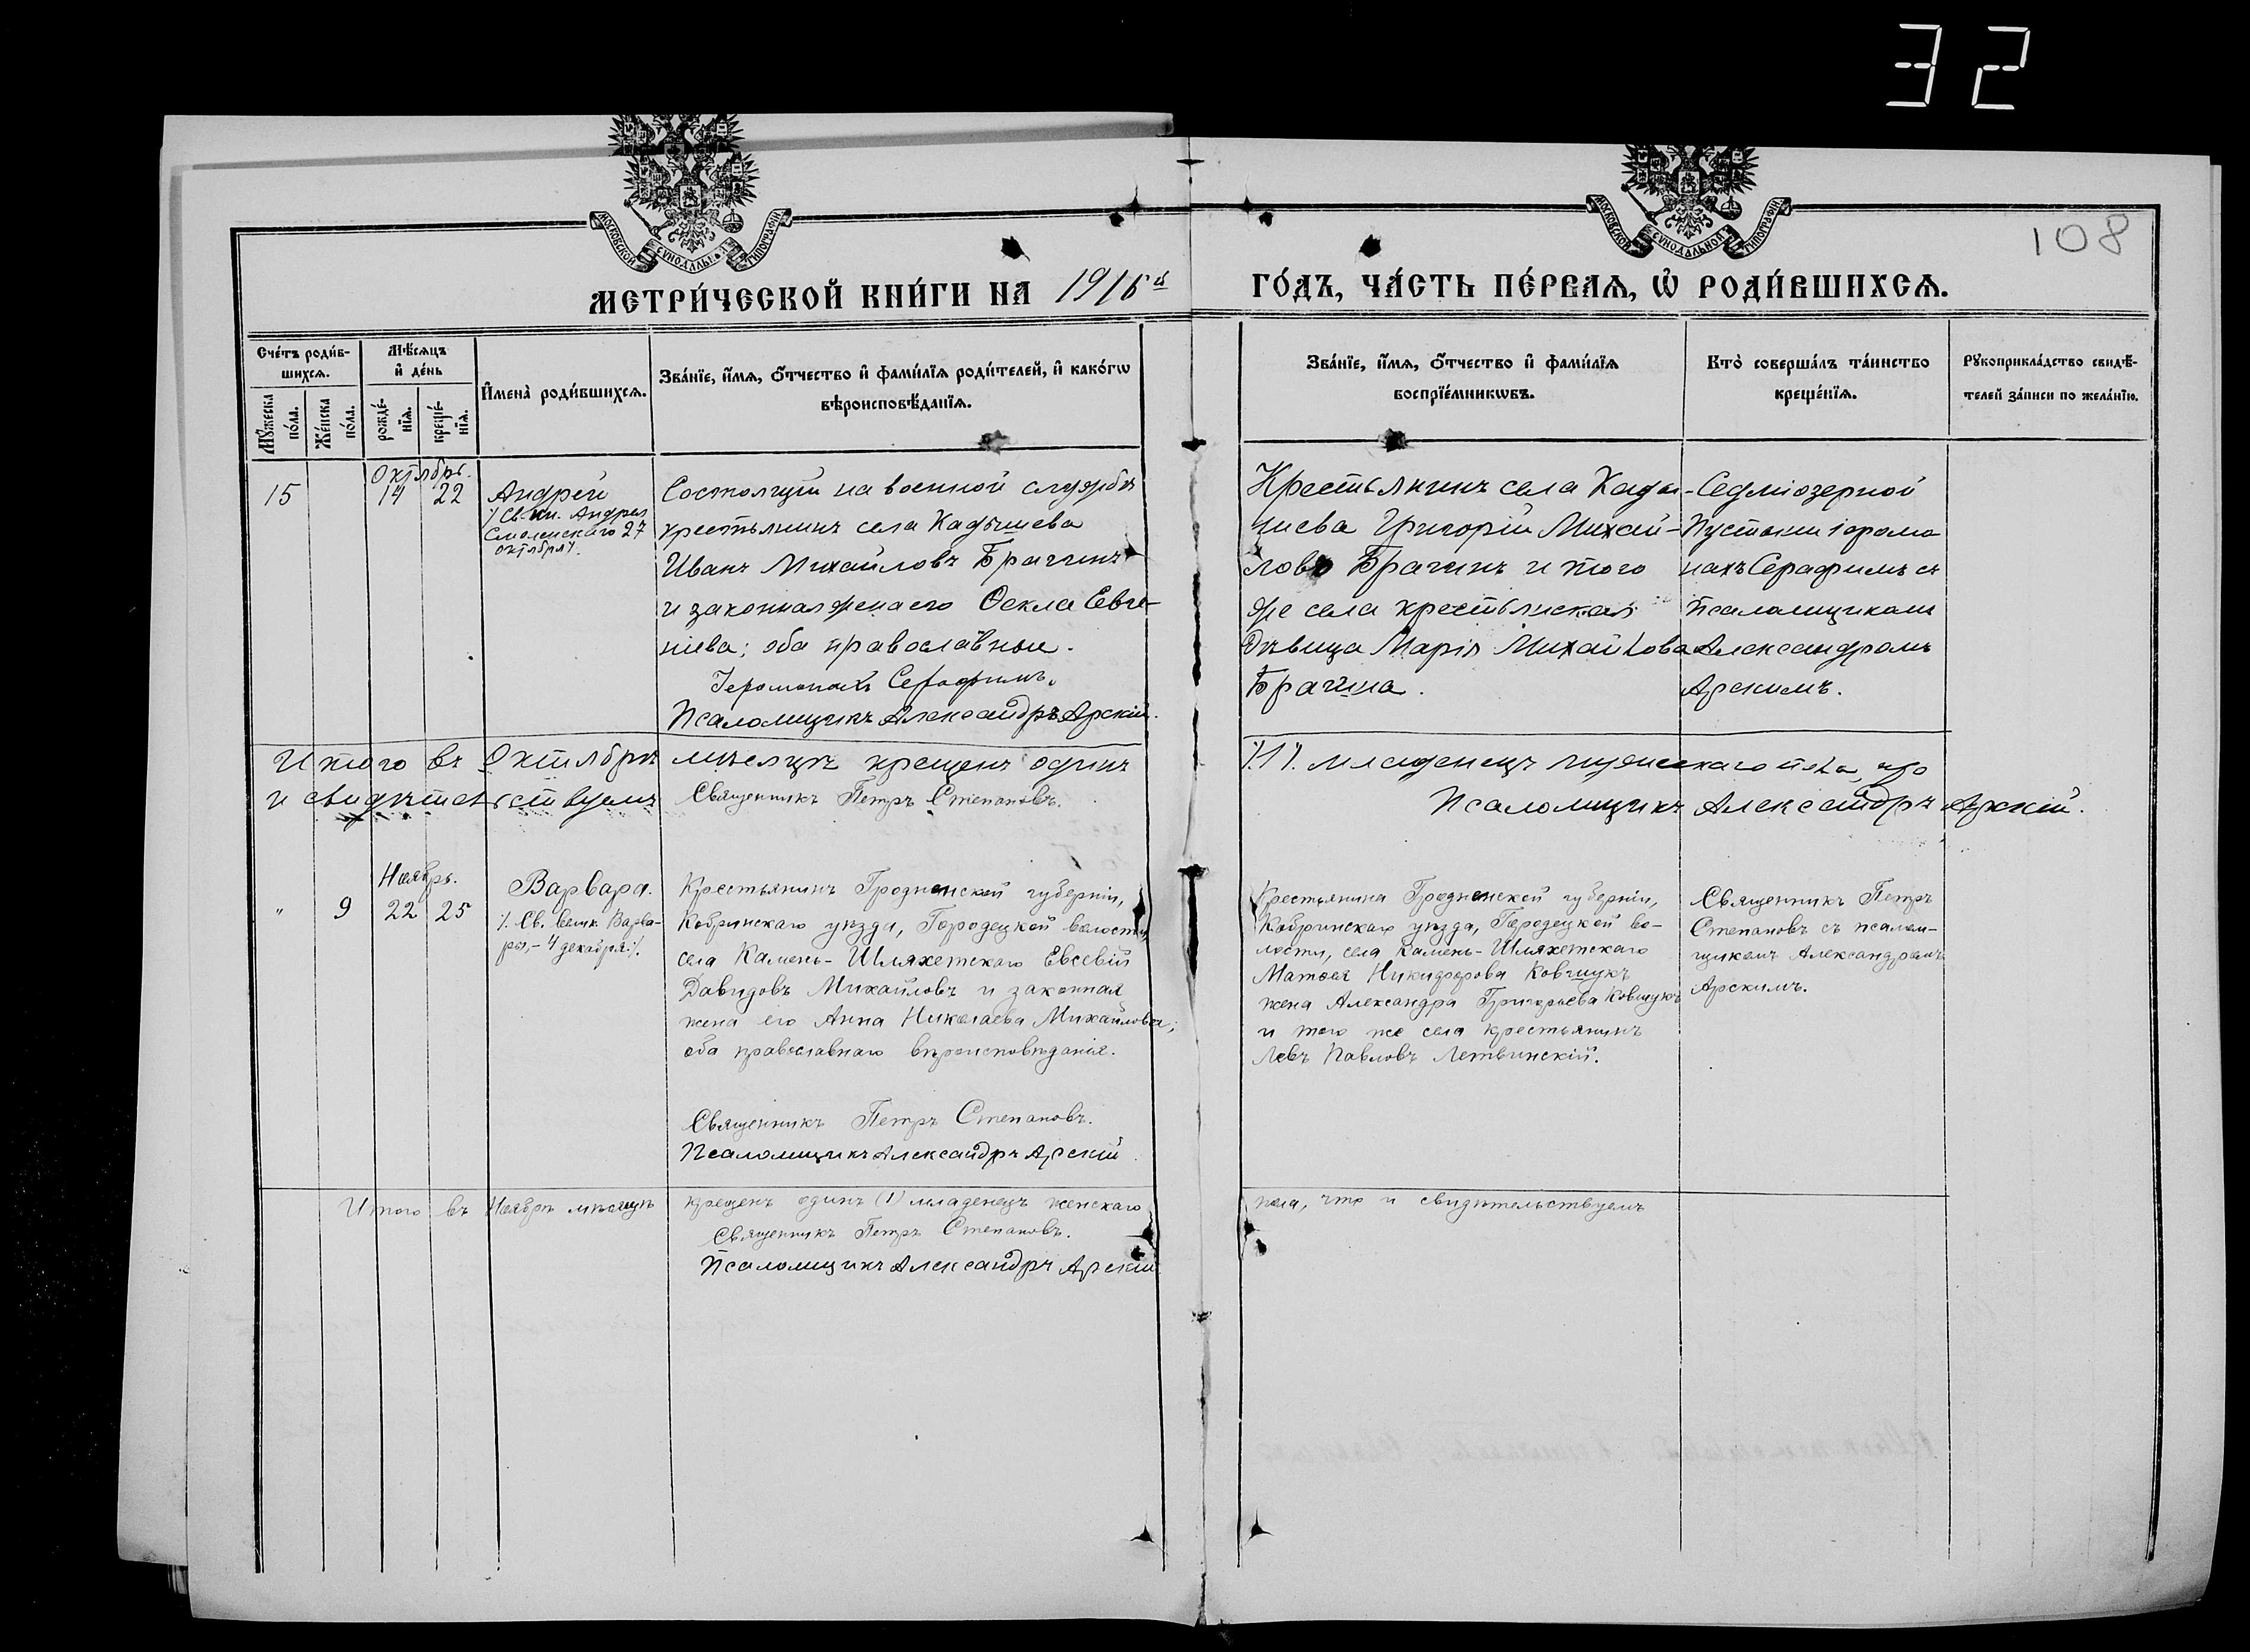 32
108
МОСКОВСКОЙ СѴНОДАЛЬНОЙ ТИПОГРАФІИ
МОСКОВСКОЙ СѴНОДАЛЬНОЙ ТИПОГРАФІИ
МЕТРИ́ЧЕСКОЙ КНИ́ГИ НА 1916й ГО́ДЪ, ЧА́СТЬ ПЕ́РВАѦ, Ѡ҆ РОДИ́ВШИХСѦ.
Сче́тъ роди́в-
шихсѧ.
Мꙋ́жеска по́ла.
Же́нска по́ла.
Мѣ́сѧцъ и҆ де́нь
рожде́-нїѧ.
креще́-нїѧ.
И҆мена̀ роди́вшихсѧ.
Зва́нїе, и҆́мѧ, ѻ҆́тчество и҆ фами́лїѧ роди́телей, и҆ како́гѡ
вѣроисповѣ́данїѧ.
Зва́нїе, и҆́мѧ, ѻ҆́тчество и҆ фами́лїѧ
воспрїе́мникѡвъ.
Кто̀ соверша́лъ та́инство
креще́нїѧ.
Рꙋкоприкла́дство свидѣ́-
телей за́писи по жела́нїю.
Октябрь.
15 14 22
Андрей
/Св. кн. Андрея
Смоленскаго 27
октября/.
Состоящій на военной службѣ
крестьянинъ села Кадышева
Иванъ Михайловъ Брагинъ
и законная жена его Ѳекла Евге-
ніева; оба православные.
Іеромонахъ Серафимъ.
Псаломщикъ Александръ Арскій.
Крестьянинъ села Кады-
шева Григорій Михай-
ловъ Брагинъ и того
же села крестьянская
дѣвица Марія Михайлова
Брагина.
Седміозерной
Пустыни іеромо
нахъ Серафимъ съ
псаломщикомъ
Александромъ
Арскимъ.
Итого въ Октябрѣ мѣсяцѣ крещенъ одинъ /1/. младенецъ мужескаго пола, что
и свидѣтельствуемъ Священникъ Петръ Степановъ. Псаломщикъ Александръ Арскій.
Ноябрь.
" 9 22 25
Варвара.
/. Св. велик. Варва-
ры,- 4 декабря./.
Крестьянинъ Гродненской губерніи,
Кобринскаго уѣзда, Городецкой волости,
села Камень-Шляхетскаго Евсевій
Давидовъ Михайловъ и законная
жена его Анна Николаева Михайлова;
оба православнаго вѣроисповѣданія.
Священникъ Петръ Степановъ.
Псаломщикъ Александръ Арскій
Крестьянина Гродненской губерніи,
Кобринскаго уѣзда, Городецкой во-
лости, села Камень-Шляхетскаго
Матѳея Никифорова Ковшукъ
жена Александра Григорьева Ковшукъ
и того же села крестьянинъ
Левъ Павловъ Летвинскій.
Священникъ Петръ
Степановъ съ псалом-
щикомъ Александромъ
Арскимъ.
Итого въ Ноябрѣ мѣсяцѣ крещенъ одинъ (1) младенецъ женскаго пола, что и свидѣтельствуемъ
Священникъ Петръ Степановъ.
Псаломщикъ Александръ Арскій